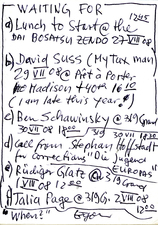 WAITING FOR
1245
a) Lunch to Start @ the
DAI BOSATSU ZENDO 27 VIII 08
b) David Suss (My Tax man
29 VIII 08 @ Pret à Porter
Madison + 40th 16 10
(I am late this year!)
c) Ben Schawinsky @ 319 Grand
30 VII 08 18 00 30 VII 08 18 30
d) Call from Stephan
for Corrections "Die Jugend
EUROPAS"
e) Rüdiger Glatz @ 319 Grand
1 VIII 08 12 00
f) Talia Page @ 319 G. 2 VIII 08
"When?" 12 00